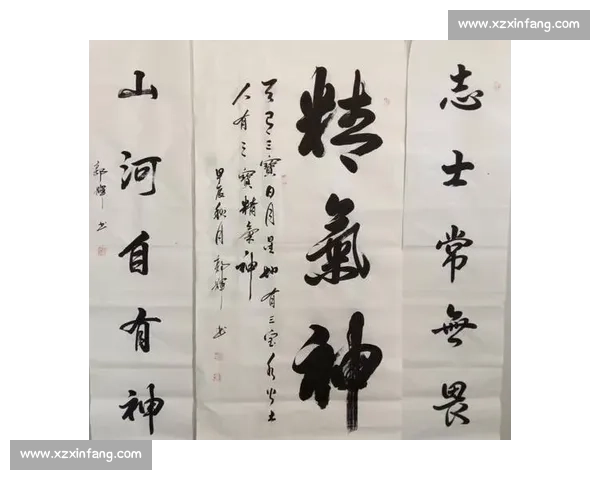 www.xzxinfang.com
志士常無畏
精氣神
天有三寶日月星地有三宝水火土
人有三寶精氣神
甲辰秋月郭书
山河自有神
郭书
www.xzxinfang.com